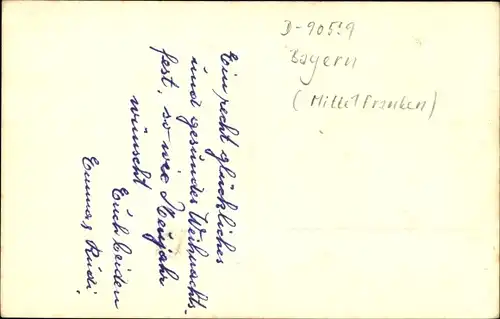 Ein recht glückliches
und gesundes Weihnachts-
fest, so wie Neujahr
wünscht
Euch beiden
Emma, Rudi.
D-90559
Bayern
(Mittelfranken)